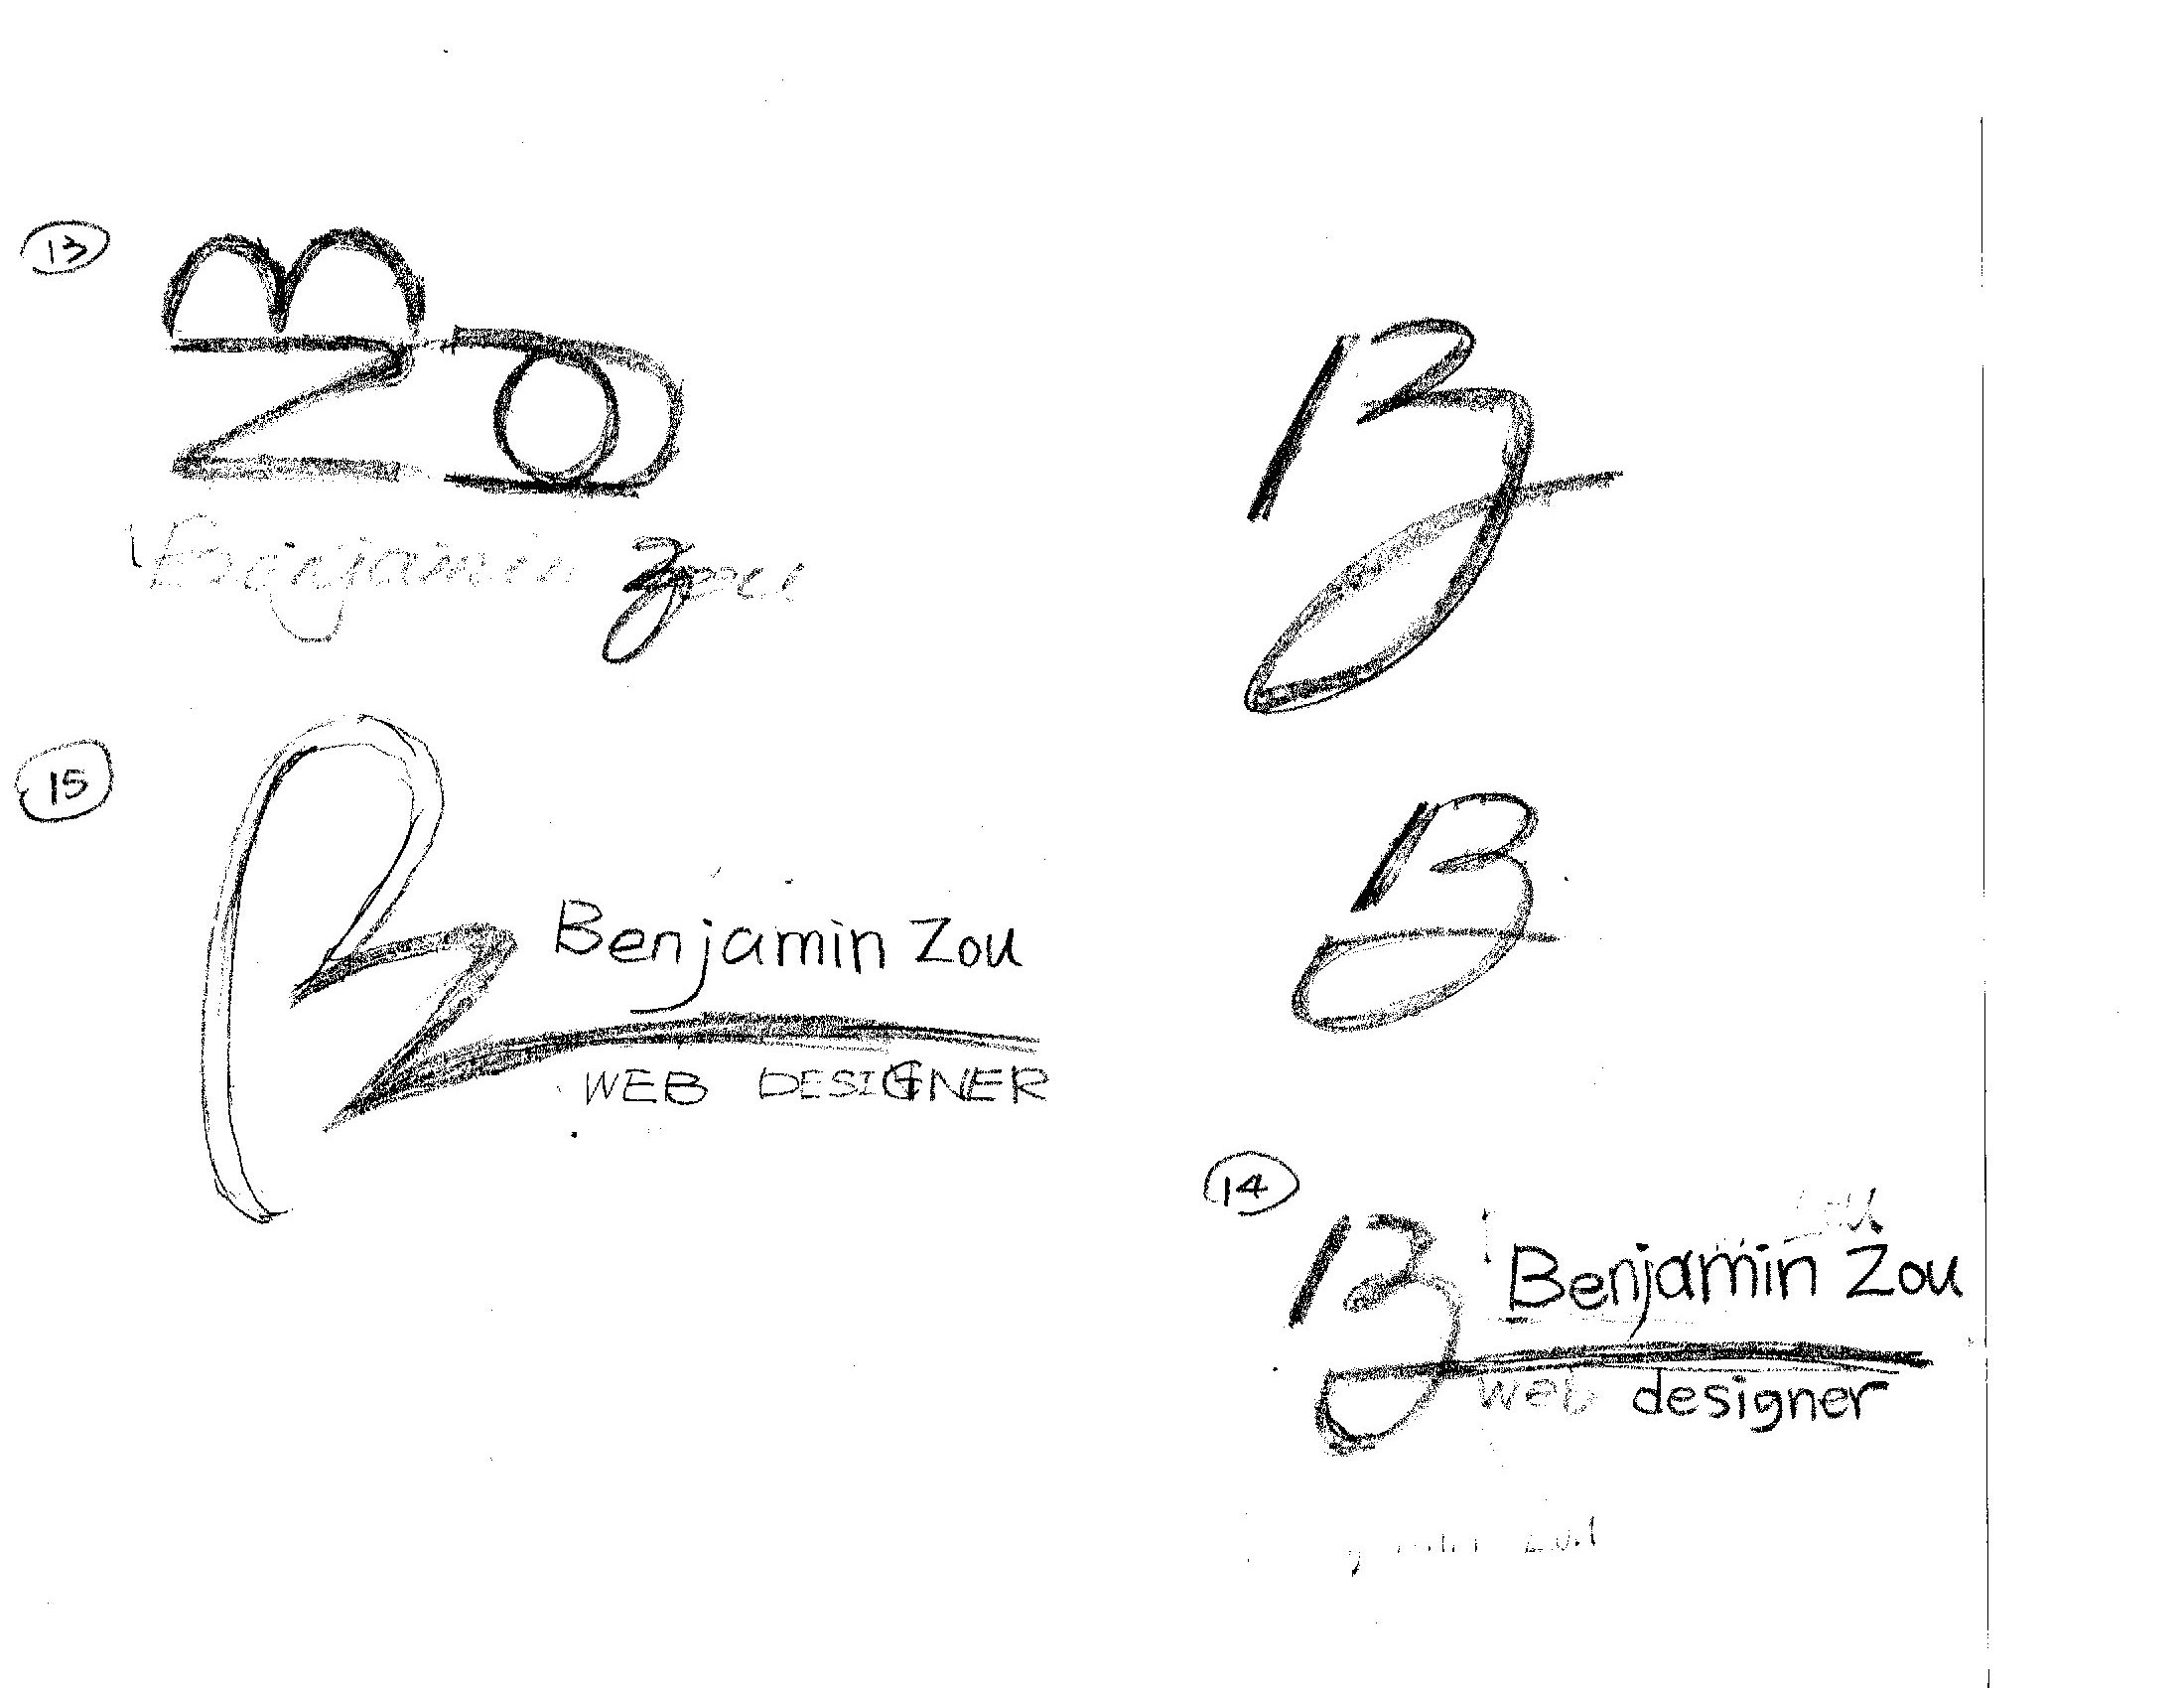 13
Benjamin Zou
15
Benjamin Zou
WEB DESIGNER
14
Benjamin Zou
web designer